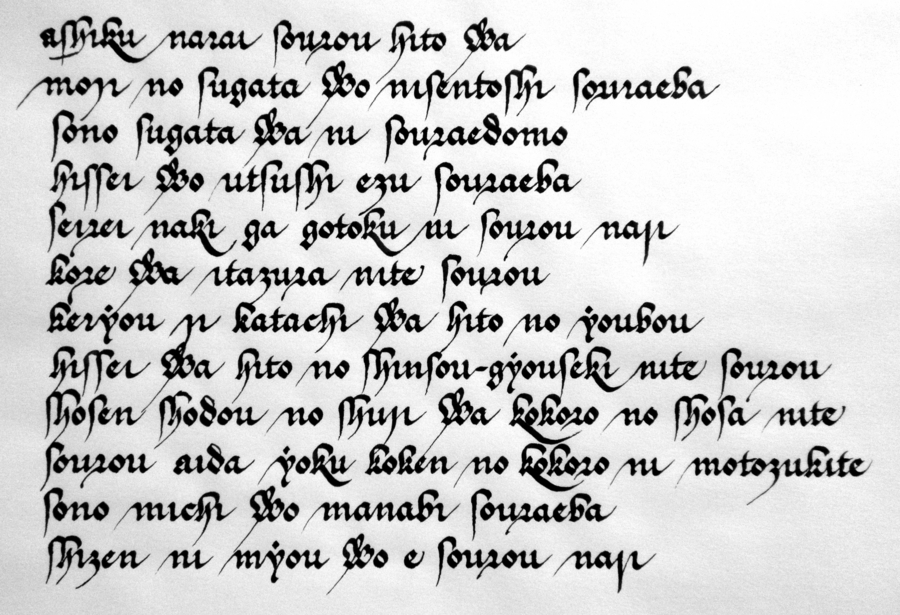 ashiku narai sourou hito wa
moji no sugata wo nisentoshi souraeba
sono sugata wa ni souraedomo
hissei wo utsushi ezu souraeba
seirei naki ga gotoku ni sourou nari
kore wa itazura nite sourou
keiyou ji katachi wa hito no youbou
hissei wa hito no shinsou-gyouseki nite sourou
shosen shodou no shuji wa kokoro no shosa nite
sourou aida yoku koken no kokoro ni motozukite
sono michi wo manabi souraeba
shizen ni myou wo e sourou nari